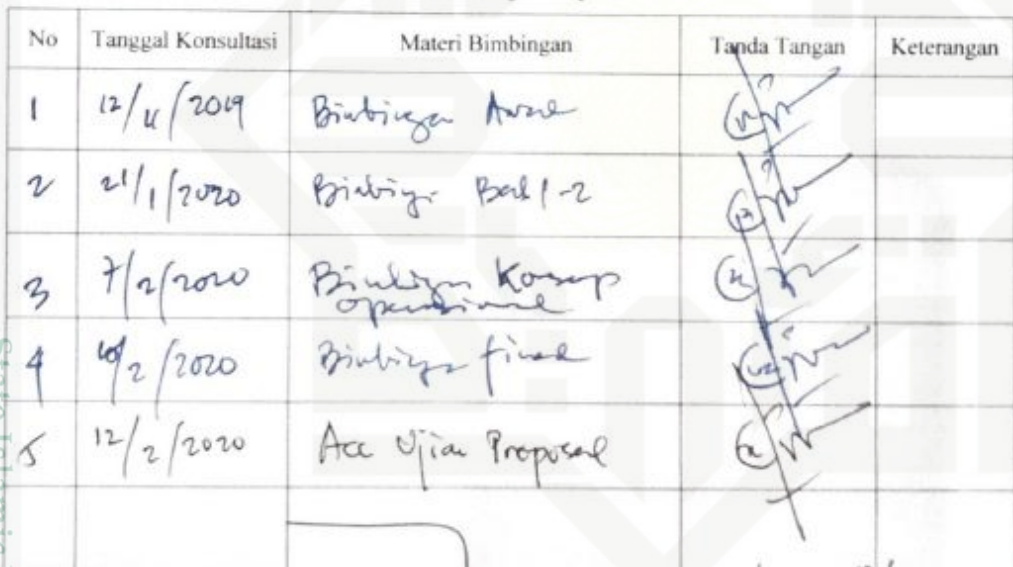 No Tanggal Konsultasi Materi Bimbingan Tanda Tangan Keterangan
1 12/11/2019 Bimbingan Awal
2 21/1/2020 Bimbingan Bab 1-2
3 7/2/2020 Bimbingan Konsep
operasional
4 10/2/2020 Bimbingan final
5 12/2/2020 Acc Ujian Proposal